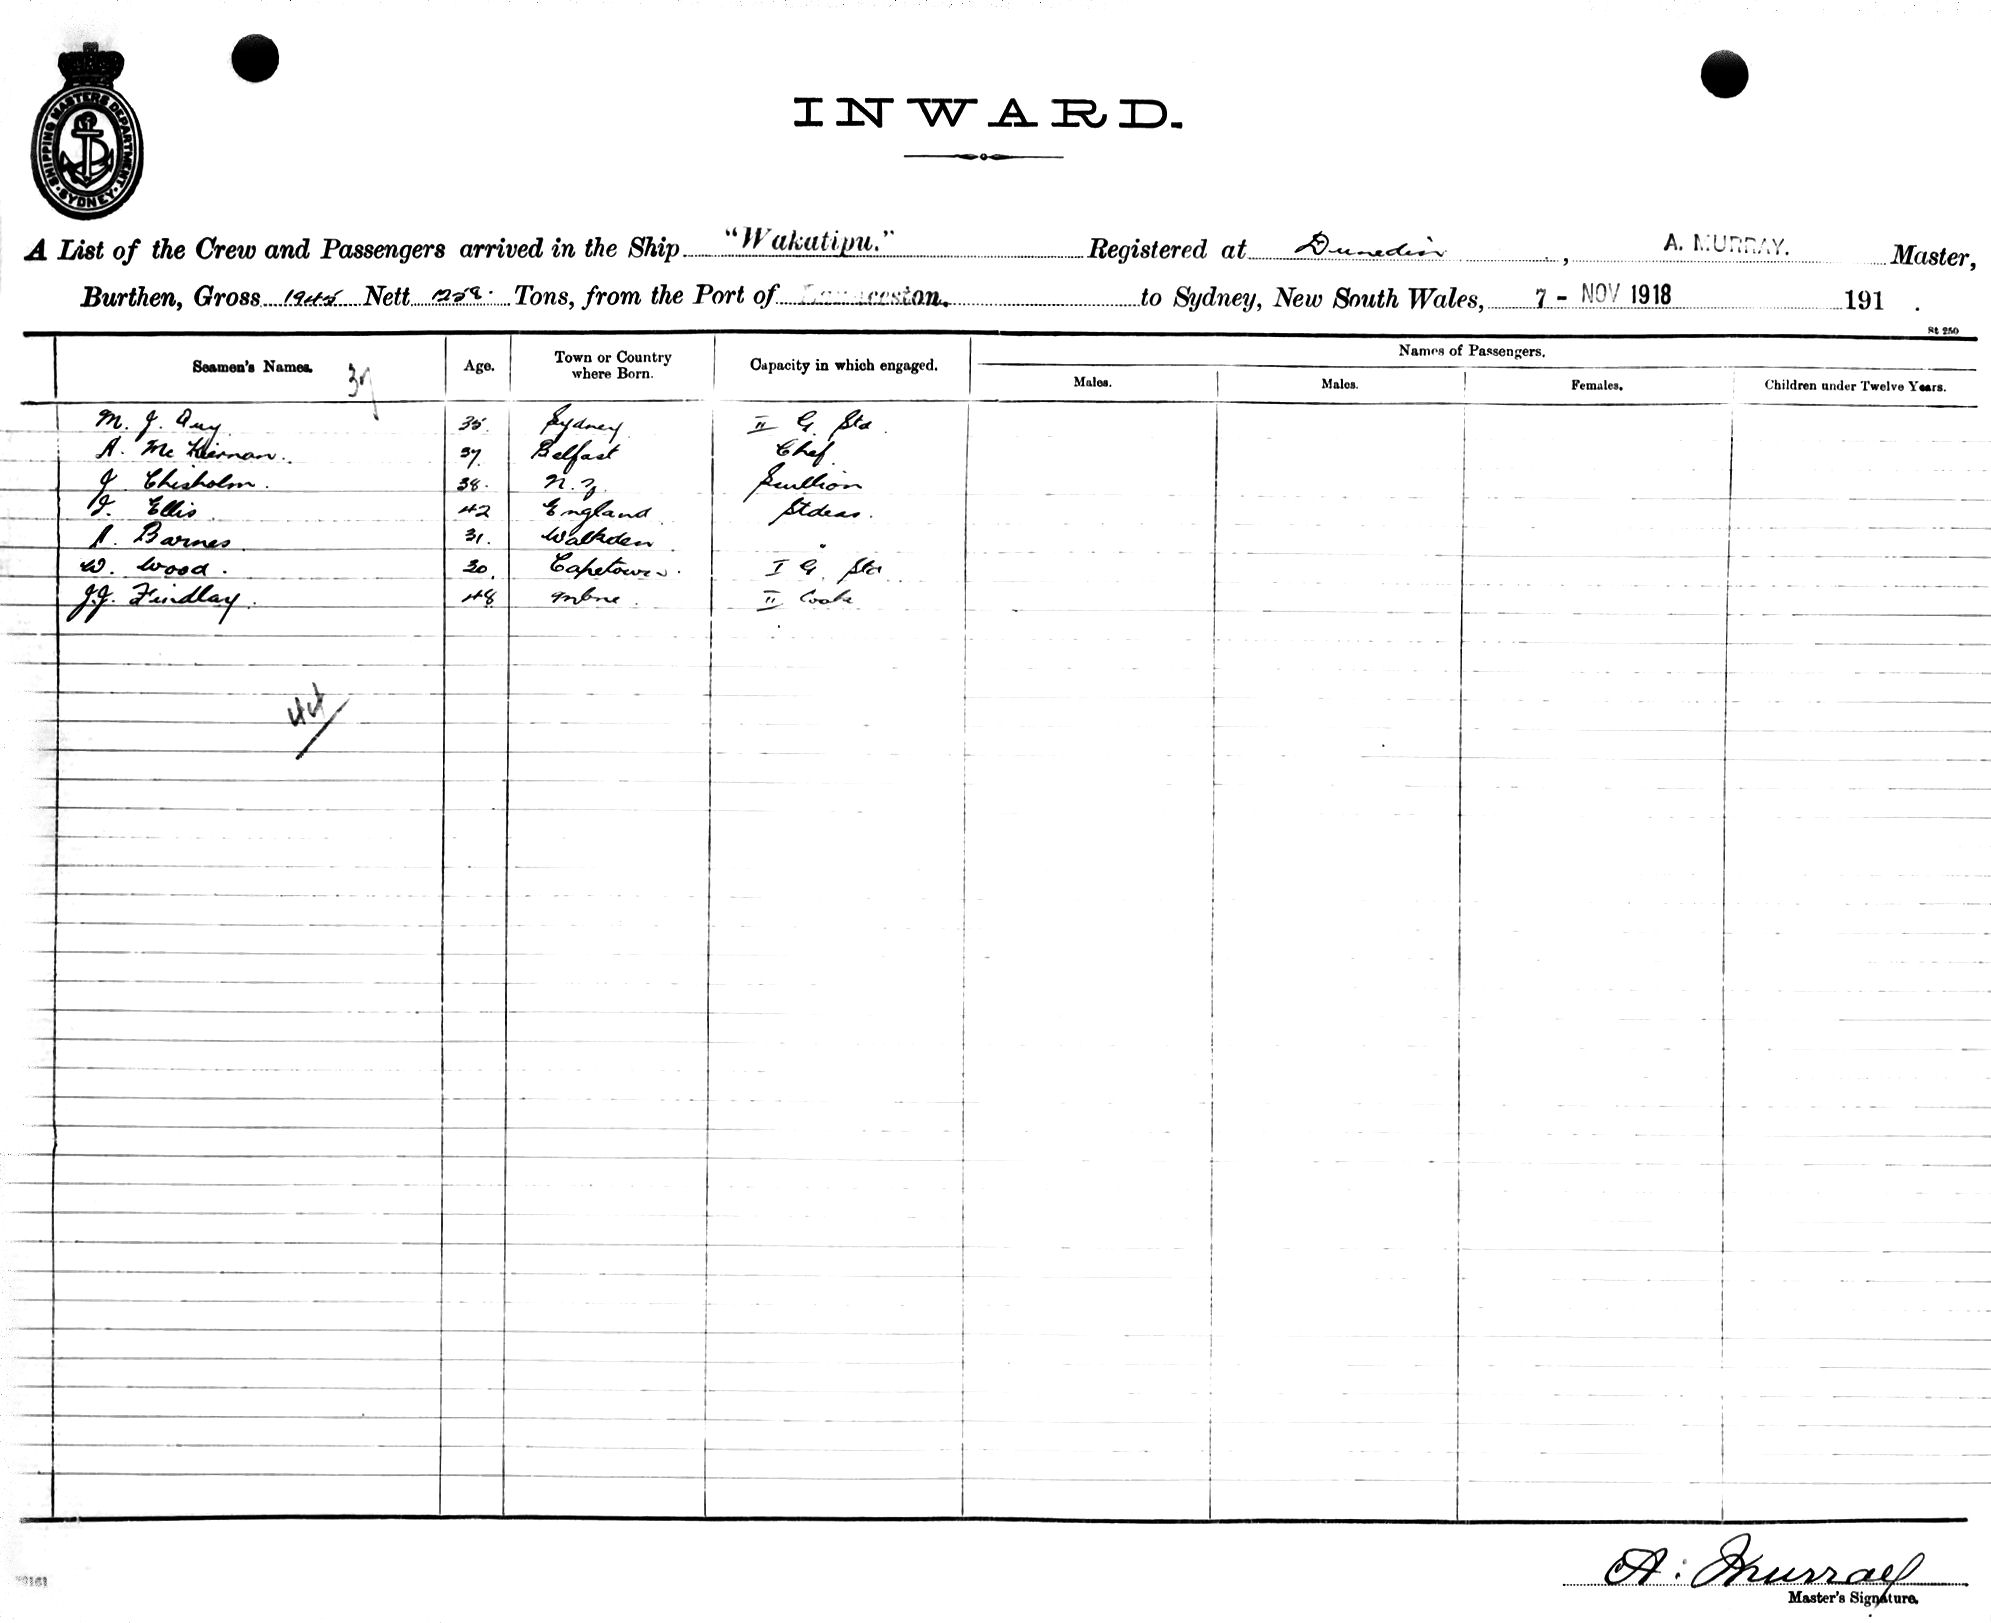 SHIPPING MASTERS DEPARTMENT SYDNEY
INWARD.
A List of the Crew and Passengers arrived in the Ship "Wakatipu." Registered at Dunedin, A. MURRAY. Master,
Burthen, Gross 1945 Nett 1259 Tons, from the Port of Launceston. to Sydney, New South Wales, 7 - NOV 1918 191 .
St 250
Seamen's Names. Age. Town or Country where Born. Capacity in which engaged. Names of Passengers.
37 Males. Males. Females. Children under Twelve Years.
M. J. 35. Sydney II G. Std
A. McKiernan. 37. Belfast Chef
J. Chisholm. 38. N.Z. Scullion
Ellis 42 England Stdess.
A. Barnes 31. Walkden "
W. Wood. 30. Capetown. I G. Std
J.J. Findlay. 48 Mbne. II Cook
44
A. Murray
Master's Signature.